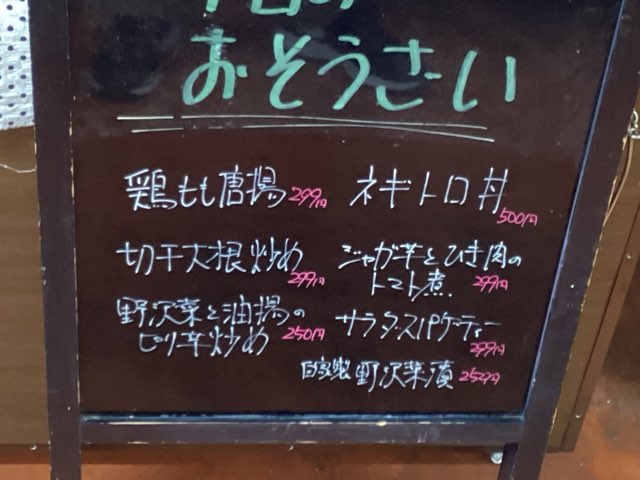 今日の
おそうざい
鶏もも唐揚 299円
切干大根炒め
299円
野沢菜と油揚の
ピリ辛炒め 250円
ネギトロ丼
500円
ジャガ芋とひき肉の
トマト煮 299円
サラダスパゲティー
299円
自家製 野沢菜漬 250円